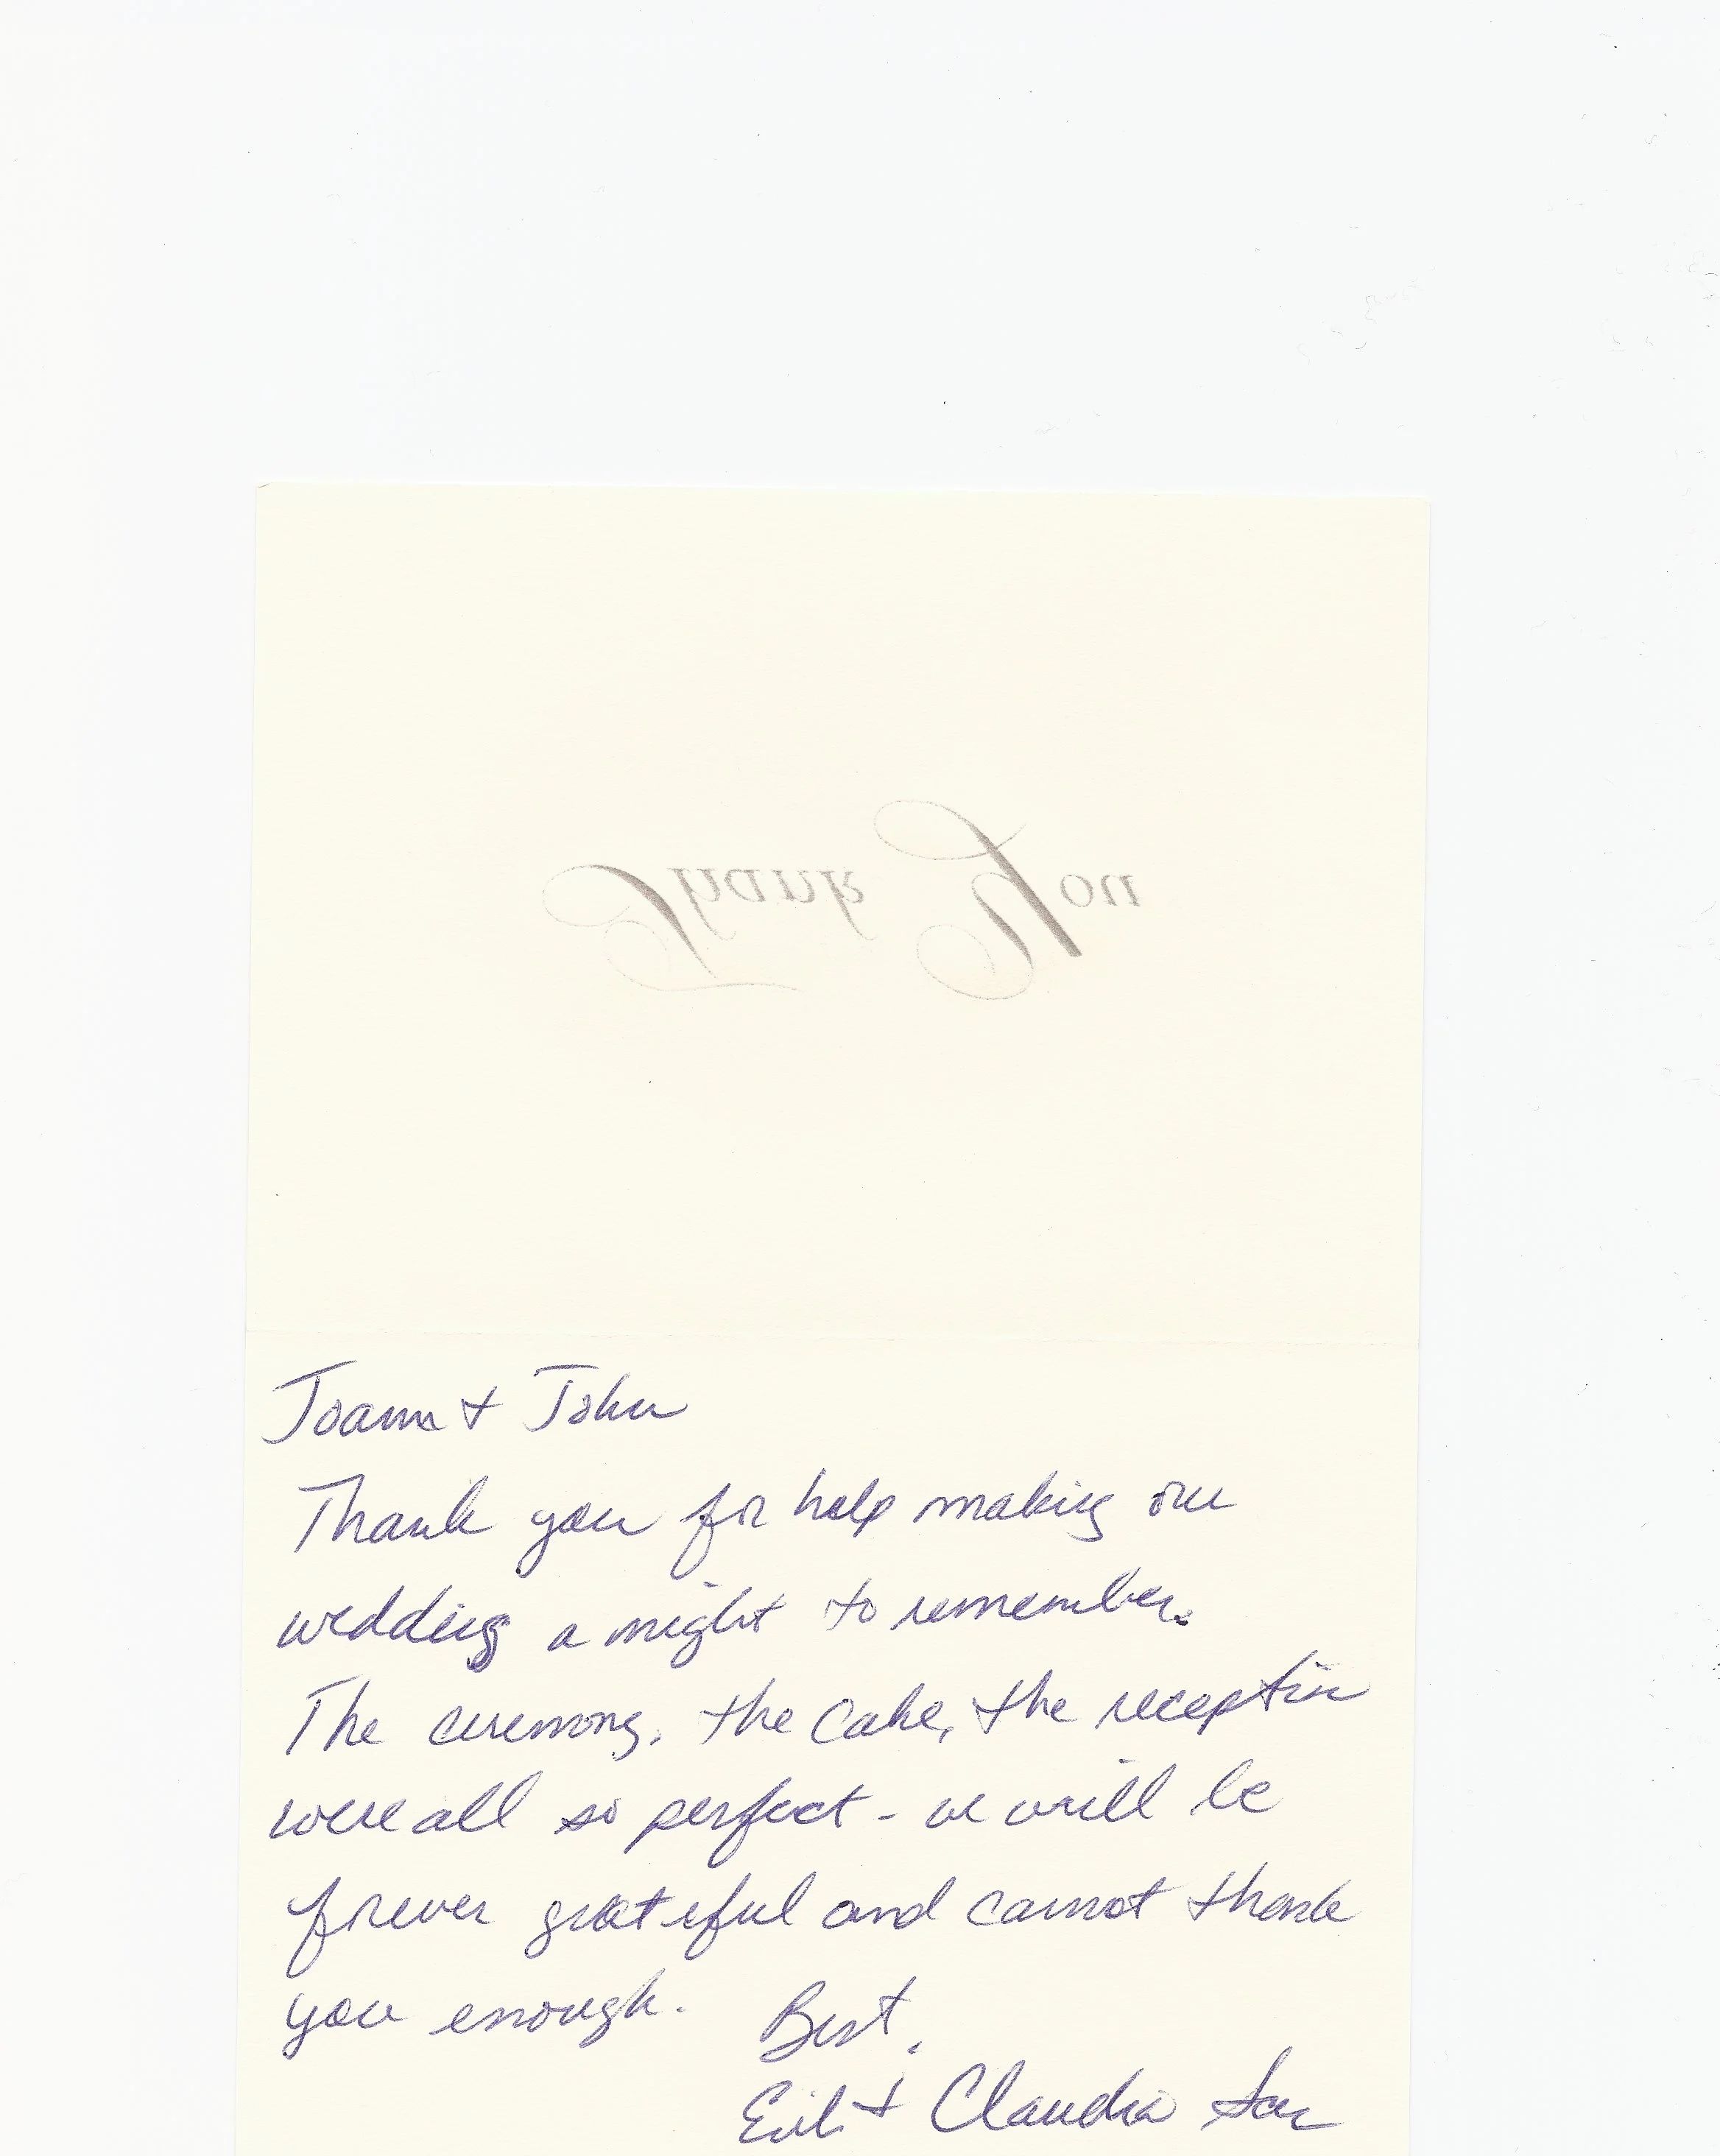 Thank You
Joann + John
Thank you for help making our
wedding a night to remember.
The ceremony, the cake, the reception
were all so perfect - we will be
forever grateful and cannot thank
you enough. Best,
+ Claudia